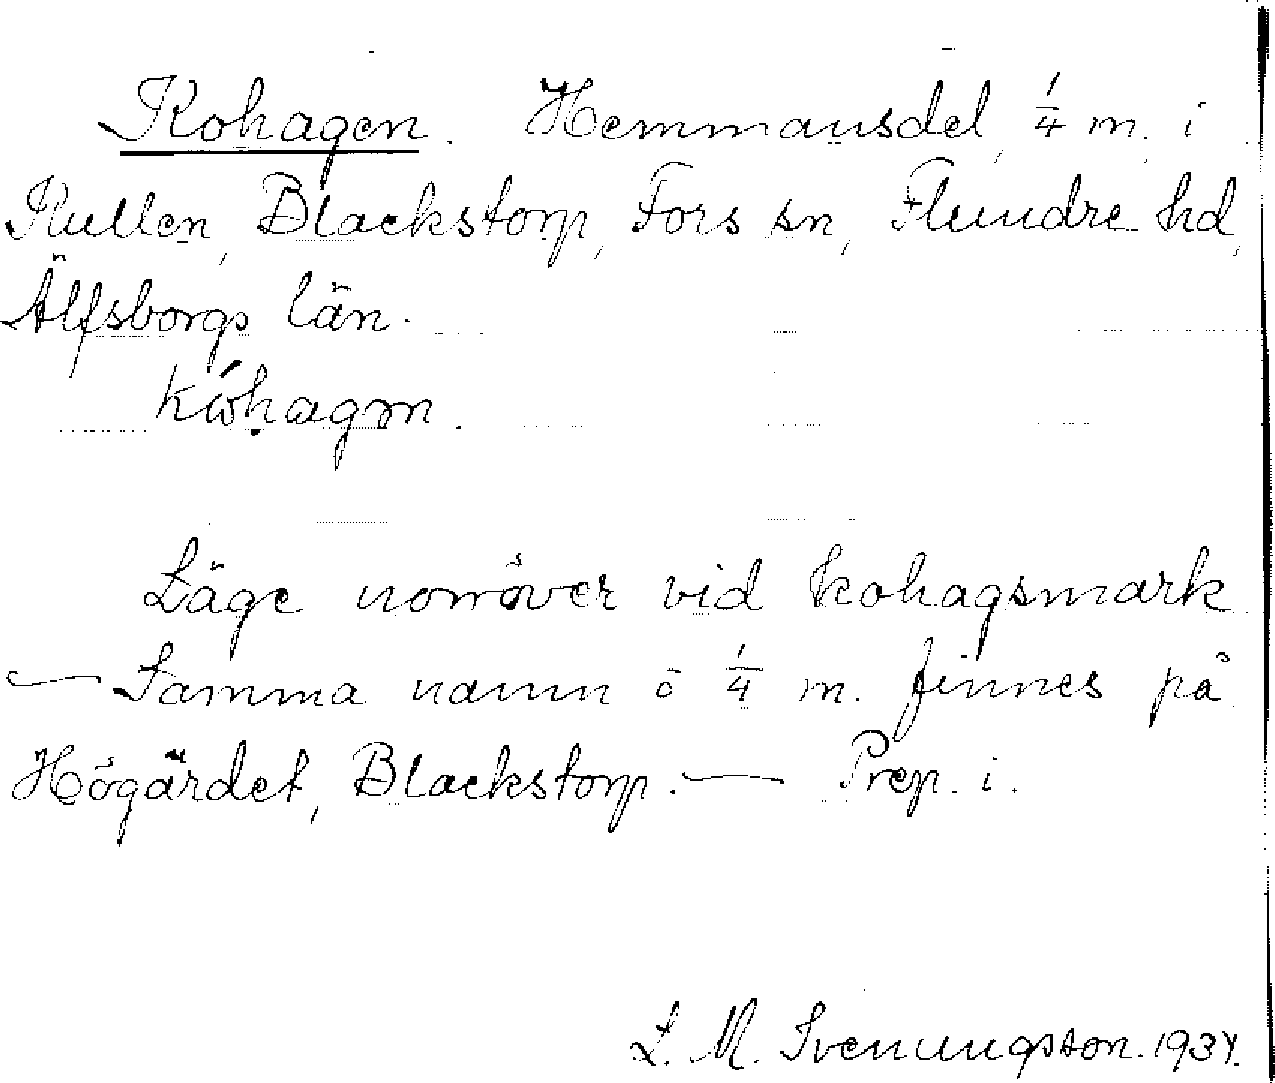 Kohagen. Hemmansdel, 1/4 m. i
Kullen, Blackstorp, Fors sn, Flundre hd,
Älfsborgs län.
kóhagən.
Läge norröver vid kohagsmark
— Samma namn o 1/4 m. finnes på
Högärdet, Blackstorp. — Prep. i.
L. M. Svenungsson. 1934.